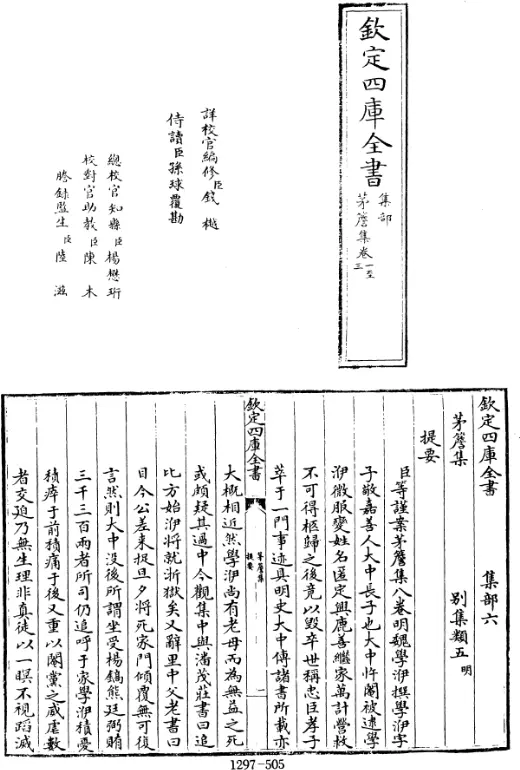 欽定四庫全書
集部
茅簷集卷一至
三
詳校官編修臣錢樾
侍讀臣孫球覆勘
總校官知縣臣楊懋珩
校對官助教臣陳木
謄錄監生臣陸滋
欽定四庫全書
集部六
茅簷集
別集類五明
提要
臣等謹案茅簷集八卷明魏學洢撰學洢字
子敬嘉善人大中長子也大中忤閹被逮學
洢微服變姓名匿定興鹿善繼家萬計營救
不可得柩歸之後竟以毀卒世稱忠臣孝子
萃于一門事迹具明史大中傳諸書所載亦
欽定四庫全書
茅簷集
提要
一
大概相近然學洢尚有老母而為無益之死
或頗疑其過中今觀集中與潘茂莊書曰追
比方始洢將就浙獄矣又辭里中父老書曰
目今公差来捉旦夕將死家門傾覆無可復
言然則大中沒後所謂坐受楊鎬熊廷弼賄
三千三百兩者所司仍追呼于家學洢積憂
積瘁于前積痛于後又重以閹黨之威虐數
者交迫乃無生理非真徒以一瞑不視蹈滅
1297-505